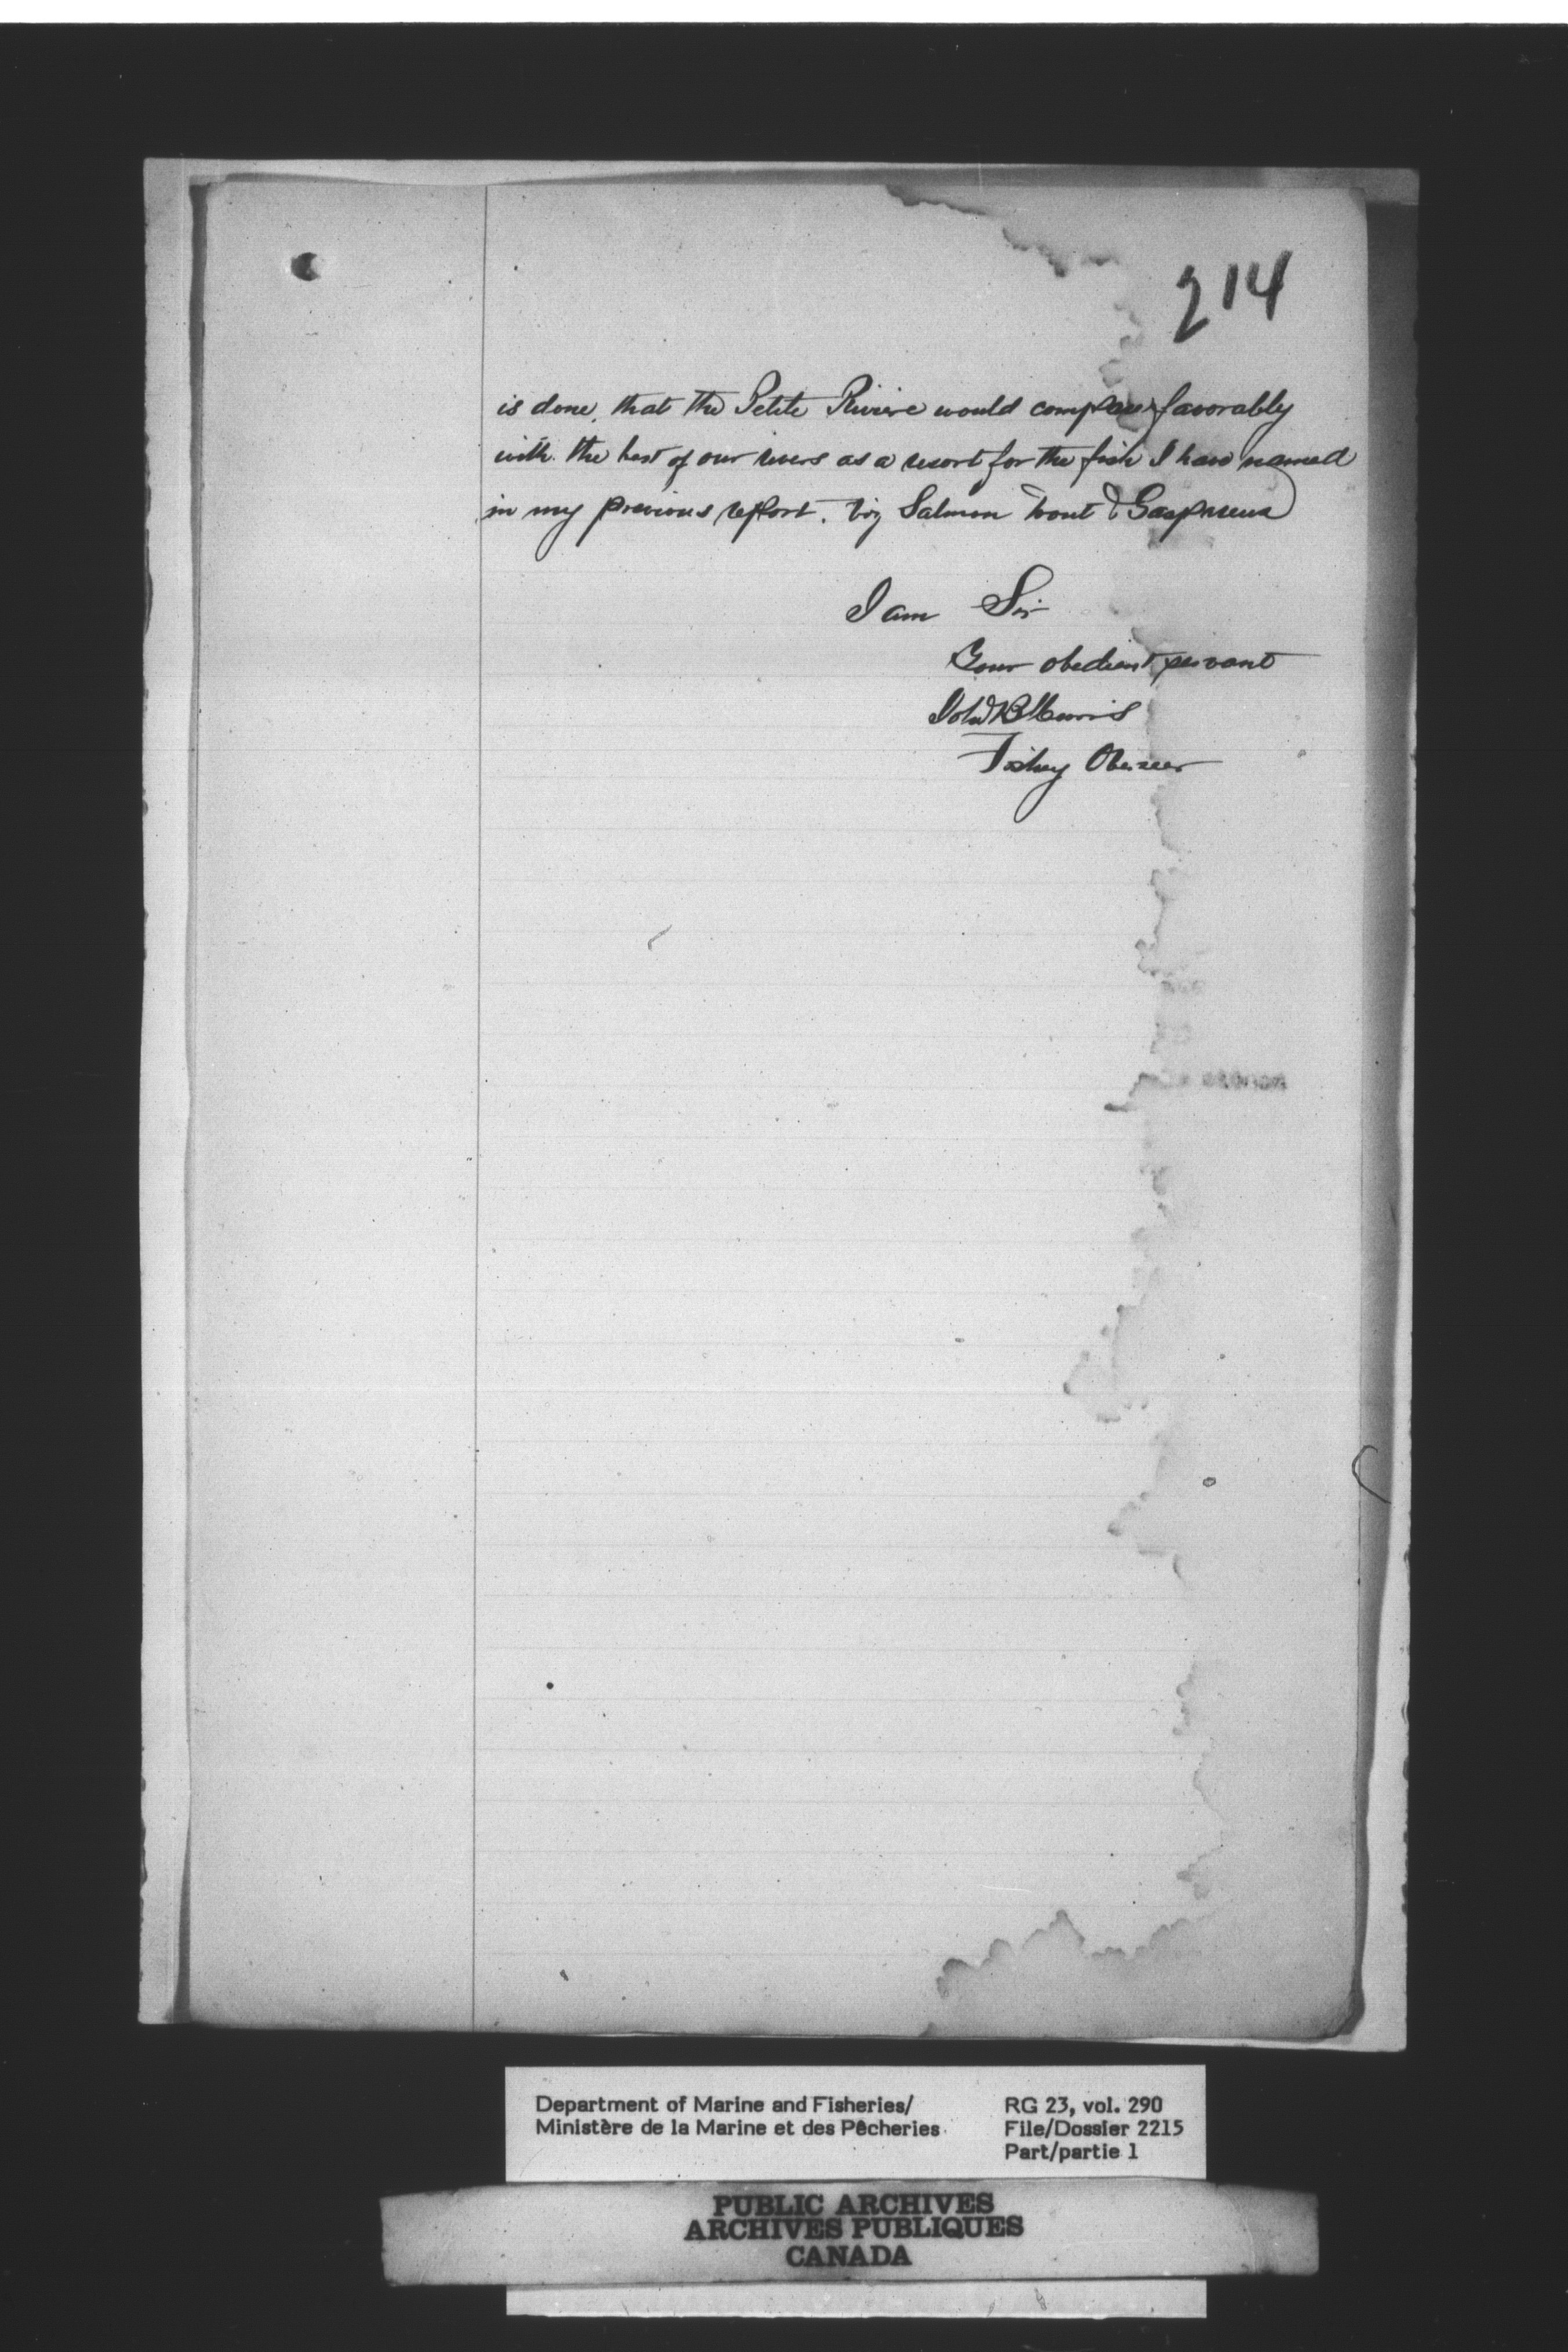 214
is done, that the Petite Riviere would compare favorably
with the best of our rivers as a resort for the fish I have named
in my previous report. viz Salmon Trout & Gaspereux
I am Sir
Your obedient servant
John
Fishery Overseer
Department of Marine and Fisheries/
Ministère de la Marine et des Pêcheries
RG 23, vol. 290
File/Dossier 2215
Part/partie 1
PUBLIC ARCHIVES
ARCHIVES PUBLIQUES
CANADA